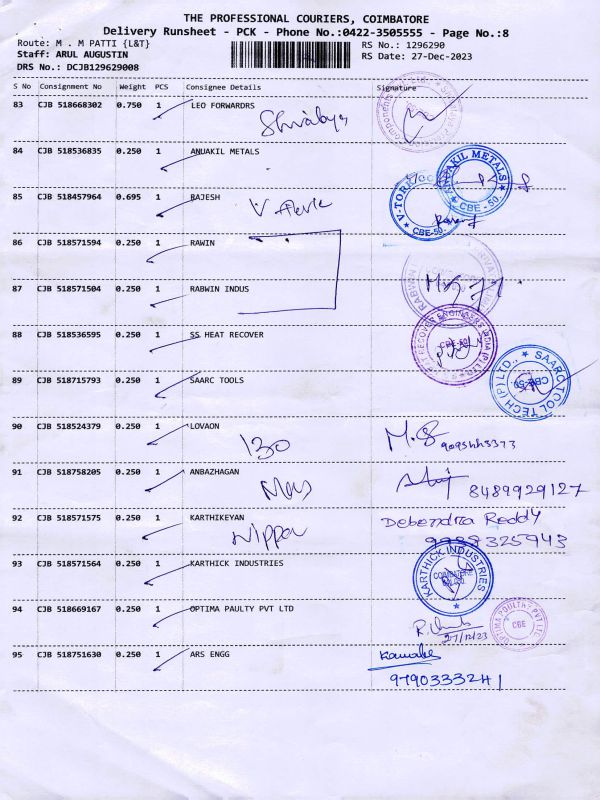 THE PROFESSIONAL COURIERS, COIMBATORE
Delivery Runsheet - PCK - Phone No.:0422-3505555 - Page No.:8
Route: M . M PATTI {L&T}
RS No.: 1296290
Staff: ARUL AUGUSTIN
RS Date: 27-Dec-2023
DRS No.: DCJB129629008
S No Consignment No Weight PCS Consignee Details Signature
83 CJB 518668302 0.750 1 LEO FORWARDRS
84 CJB 518536835 0.250 1 ANUAKIL METALS
ANUAKIL METALS
CBE - 50.
85 CJB 518457964 0.695 1 RAJESH
CBE-50.
86 CJB 518571594 0.250 1 RAWIN
87 CJB 518571504 0.250 1 RABWIN INDUS
88 CJB 518536595 0.250 1 SS HEAT RECOVER
89 CJB 518715793 0.250 1 SAARC TOOLS
SAARC TOOL TECH (P) LTD.,
CBE-50.
90 CJB 518524379 0.250 1 LOVAON
130
91 CJB 518758205 0.250 1 ANBAZHAGAN
8489929127
92 CJB 518571575 0.250 1 KARTHIKEYAN
Debendra Reddy
93 CJB 518571564 0.250 1 KARTHICK INDUSTRIES
KARTHICK INDUSTRIES
COIMBATORE
94 CJB 518669167 0.250 1 OPTIMA PAULTY PVT LTD
27/12/23
OPTIMA POULTRY PVT LTD
CBE
95 CJB 518751630 0.250 1 ARS ENGG
9790333241